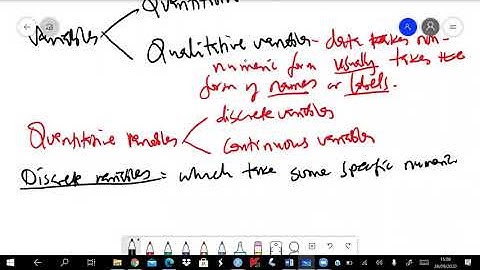 Quantitative
Variables
Qualitative variables - data takes non-
numeric form usually takes the
form of names or labels.
discrete variables
Quantitative variables
continuous variables
Discrete variables: which take some specific numeric
15:08